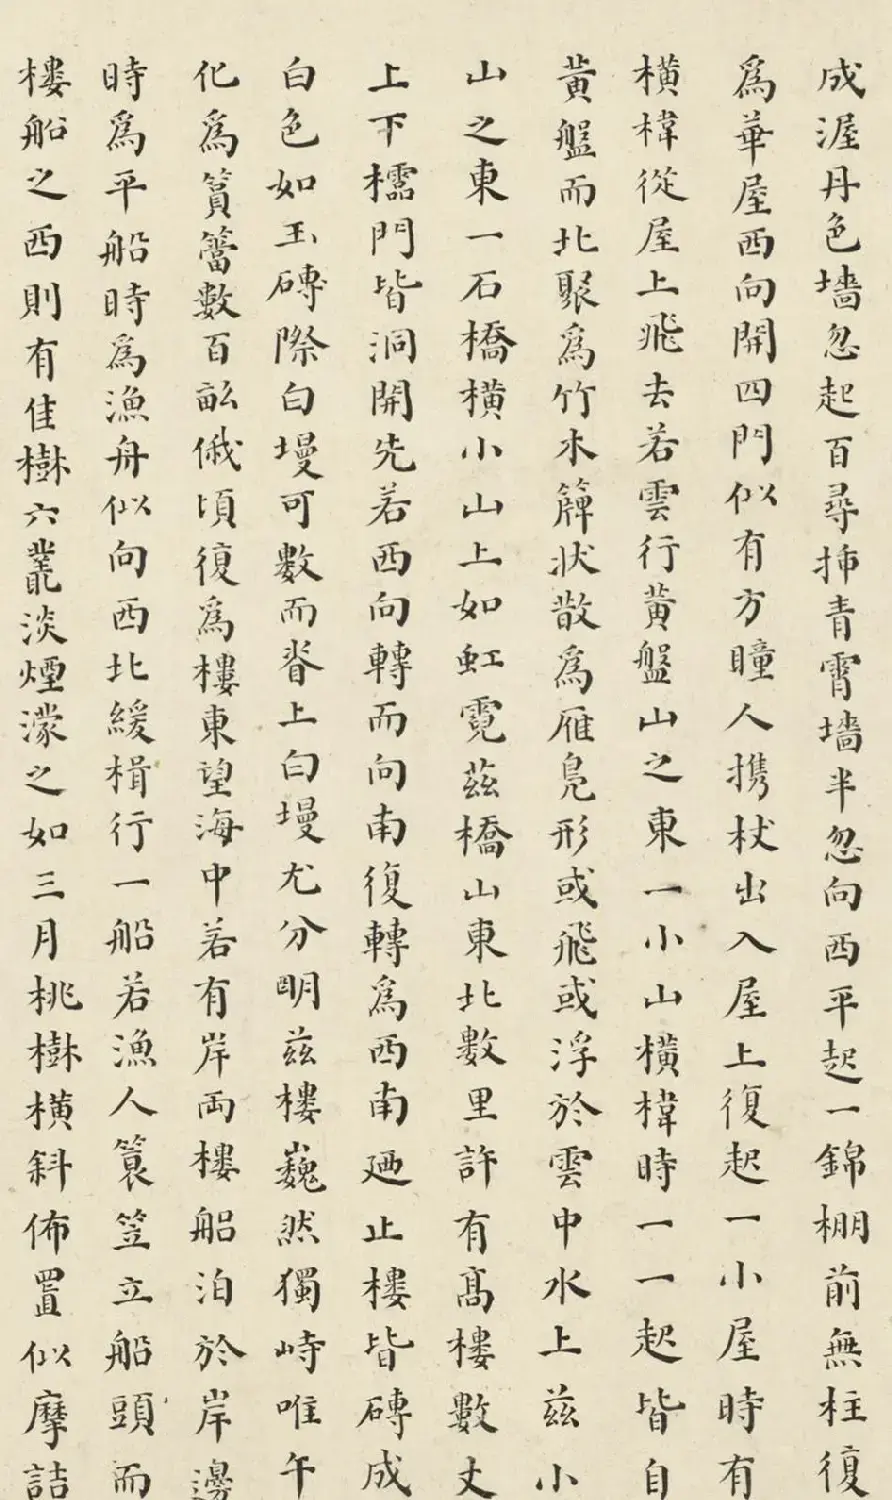 成渥丹色墻忽起百尋揷青霄墻半忽向西平起一錦棚前無柱復
為華屋西向開四門似有方瞳人攜杖出入屋上復起一小屋時有
橫椲從屋上飛去若雲行黃盤山之東一小山橫椲時一一起皆自
黃盤而北聚為竹木簰狀散為雁鳧形或飛或浮於雲中水上茲小
山之東一石橋橫小山上如虹霓茲橋山東北數里許有高樓數丈
上下櫺門皆洞開先若西向轉而向南復轉為西南廼止樓皆磚成
白色如玉磚際白墁可數而脊上白墁尤分明茲樓巍然獨峙唯午
化為篔簹數百畝俄頃復為樓東望海中若有岸兩樓船泊於岸邊
時為平船時為漁舟似向西北緩楫行一船若漁人簑笠立船頭而
樓船之西則有佳樹六叢淡煙濛之如三月桃樹橫斜佈置似摩詰